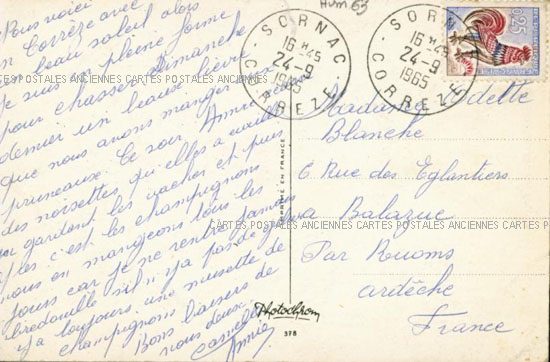 Nous voici
en Corrèze avec
beau soleil alors
je suis en pleine forme
pour chasser. Dimanche
dernier un beau lièvre
que nous avons mangé aux
pruneaux. Ce soir Annie
des noisettes qu'elles a cueilli
en gardant les vaches et puis
les c'est les champignons
nous en mangeons tous les
jours car je ne rentre jamais
bredouille s'il n'y a pas de
y a toujours une musette de
champignons
Bons baisers de
nous deux
Camille
Annie
Hum 63
SORNAC
16 H 45
24-9
1965
CORREZE
SORNAC
16 H 45
24-9
1965
CORREZE
0,25
CARTES POSTALES ANCIENNES CARTES POSTALES ANCIENNES CARTES POSTALES ANCIENNES
Madame Odette
Blanche
6 Rue des Eglantiers
à Balazuc
Par Ruoms
ardèche
France
CARTES POSTALES ANCIENNES CARTES POSTALES ANCIENNES CARTES POSTALES ANCIENNES
IMPRIMÉ EN FRANCE
Photochrom
378